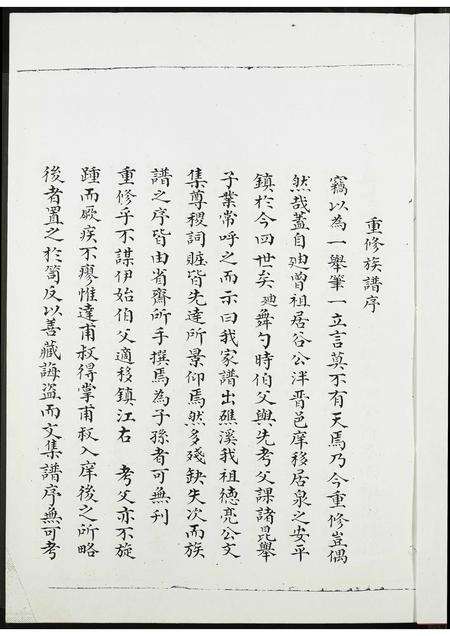 重修族譜序
竊以為一舉筆一立言莫不有天焉乃今重修豈偶
然哉蓋自廸曾祖居谷公泮晋邑庠移居泉之安平
鎮於今四世矣廸舞勺時伯父與先考父課諸昆舉
子業常呼之而示曰我家譜出礁溪我祖德亮公文
集尊稷詞賍皆先達所景仰焉然多殘缺失次而族
譜之序皆由省齋所手撰焉為子孫者可無刊
重修乎不謀伊始伯父適移鎮江右 考父亦不旋
踵而厥疾不瘳惟達甫叔得掌甫叔入庠後之所略
後者置之於笥反以善藏誨盜而文集譜序無可考